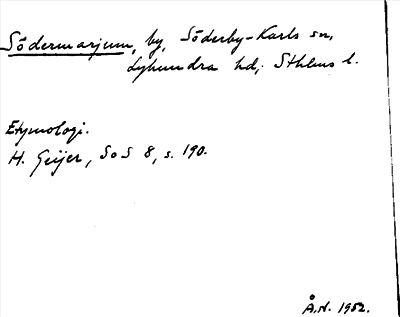 Södermarjum, by, Söderby-Karls sn,
Lyhundra hd, Sthlms l.
Etymologi.
H. Geijer, SoS 8, s. 190.
Å.N. 1952.